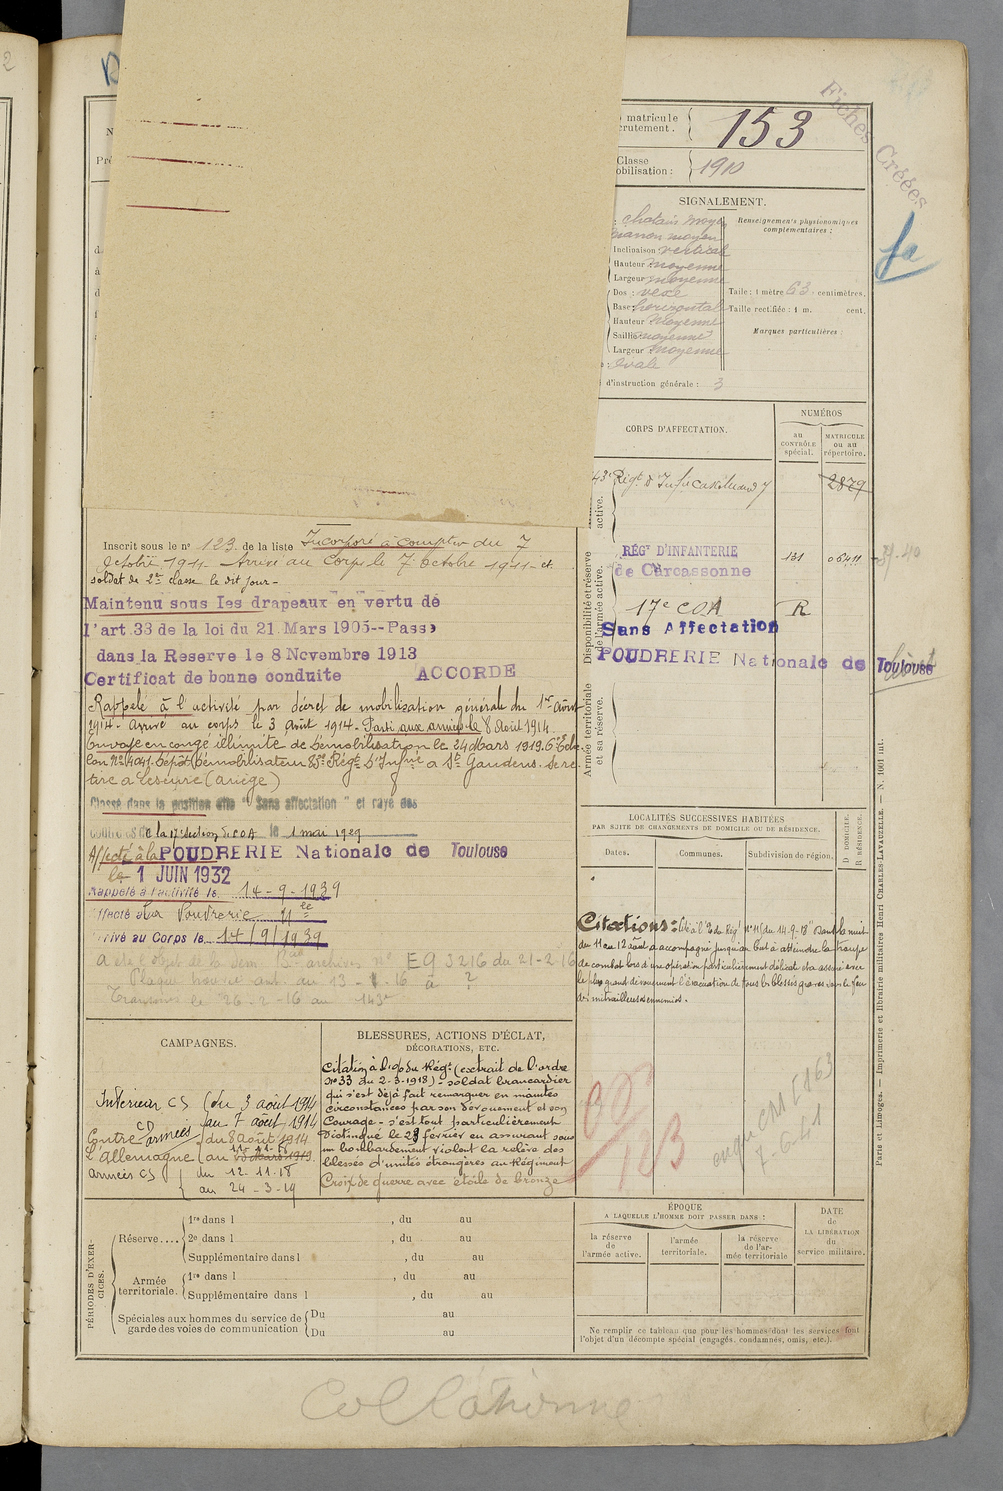 2
Fiches Créées
matricule
crutement.
153
Classe
obilisation :
1910
fa
SIGNALEMENT.
chatain moyen
marron moyen
Inclinaison vertical
Hauteur moyenne
Largeur moyenne
Dos : vexe
Base : horizontal
Hauteur moyenne
Saillie moyenne
Largeur moyenne
Ovale
d'instruction générale : 3
Renseignements physionomiques
complémentaires :
Taille : 1 mètre 63 centimètres.
Taille rectifiée : 1 m. cent.
Marques particulières :
CORPS D'AFFECTATION.
NUMÉROS
au
CONTRÔLE
spécial.
MATRICULE
ou au
répertoire.
active.
2879
Disponibilité et réserve
de l'armée active.
RÉGt D'INFANTERIE
de Carcassonne
131
17e COA
R
Sans Affectation
POUDRERIE Nationale de Toulouse
Armée territoriale
et sa réserve.
Inscrit sous le n° 123 de la liste Incorporé à compter du 7
Octobre 1911 Arrivé au Corps le 7 Octobre 1911 et
soldat de 2e classe le dit jour -
Maintenu sous les drapeaux en vertu de
l'art.33 de la loi du 21 Mars 1905--Passé
dans la Reserve le 8 Novembre 1913
Certificat de bonne conduite ACCORDE
Rappelé à l'activité par décret de mobilisation générale du 1er Août
1914. Arrivé au corps le 3 Août 1914. Parti aux armées le 8 Août 1914.
Envoyé en congé illimité de Démobilisation le 24 Mars 1919. 6e Eche
lon N° 14041. Dépôt Démobilisateur 83e Régt D'Infrie à St Gaudens. Se re
tire à Lescure (Ariège)
Classé dans la position dite " Sans affectation " et rayé des
contrôles de la 17e Section de COA le 1 mai 1929
Affecté à la POUDRERIE Nationale de Toulouse
le 1 JUIN 1932
Rappelé à l'activité le 14-9-1939
Affecté à la Poudrerie
Arrivé au Corps le 14/9/1939
EG 3216 du 21-2-16
LOCALITÉS SUCCESSIVES HABITÉES
PAR SUITE DE CHANGEMENTS DE DOMICILE OU DE RÉSIDENCE.
D DOMICILE.
R RÉSIDENCE.
Dates.
Communes.
Subdivision de région.
Citations : Cité à l'O. du Régt N° 116 du 14-9-18 "Dans la nuit
du 11 au 12 août a accompagné jusqu'au but à atteindre la troupe
de combat lors d'une opération particulièrement délicate et a assuré avec
le plus grand dévouement l'évacuation de tous les blessés graves sous le feu
des mitrailleuses ennemies.
CAMPAGNES.
Intérieur CS
du 3 août 1914
au 7 août 1914
Contre CD
L'Allemagne armées
du 8 août 1914
au 11-11-18
armées CS
du 12-11-18
au 24-3-19
BLESSURES, ACTIONS D'ÉCLAT,
DÉCORATIONS, ETC.
Citation à l'o/o du Régt (extrait de l'ordre
N° 33 du 2-3-1918) - soldat brancardier
qui s'est déjà fait remarquer en maintes
circonstances par son dévouement et son
Courage - s'est tout particulièrement
Distingué le 23 février en assurant sous
un bombardement violent la relève des
blessés d'unités étrangères au Régiment
Croix de guerre avec étoile de bronze
7-6-41
PÉRIODES D'EXER-
CICES.
Réserve....
1re dans l , du au
2e dans l , du au
Supplémentaire dans l , du au
Armée
territoriale.
1re dans l , du au
Supplémentaire dans l , du au
Spéciales aux hommes du service de
garde des voies de communication
Du au
Du au
ÉPOQUE
A LAQUELLE L'HOMME DOIT PASSER DANS :
la réserve
de
l'armée active.
l'armée
territoriale.
la réserve
de l'ar-
mée territoriale
DATE
de
LA LIBÉRATION
du
service militaire.
Ne remplir ce tableau que pour les hommes dont les services font
l'objet d'un décompte spécial (engagés, condamnés, omis, etc.).
Paris et Limoges. — Imprimerie et librairie militaires Henri CHARLES-LAVAUZELLE. — N. 1001 int.
Collationné